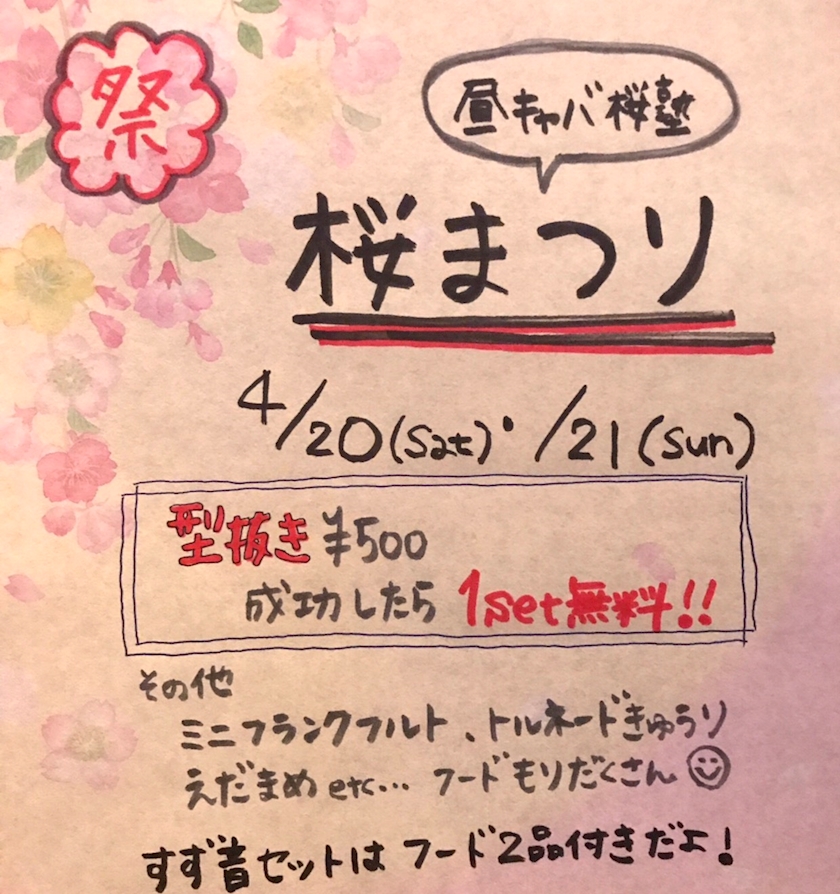 祭
昼キャバ桜塾
桜まつり
4/20(Sat)・/21(Sun)
型抜き ¥500
成功したら 1set無料!!
その他
ミニフランクフルト、トルネードきゅうり
えだまめ etc… フードもりだくさん
すず音セットは フード2品付きだよ!